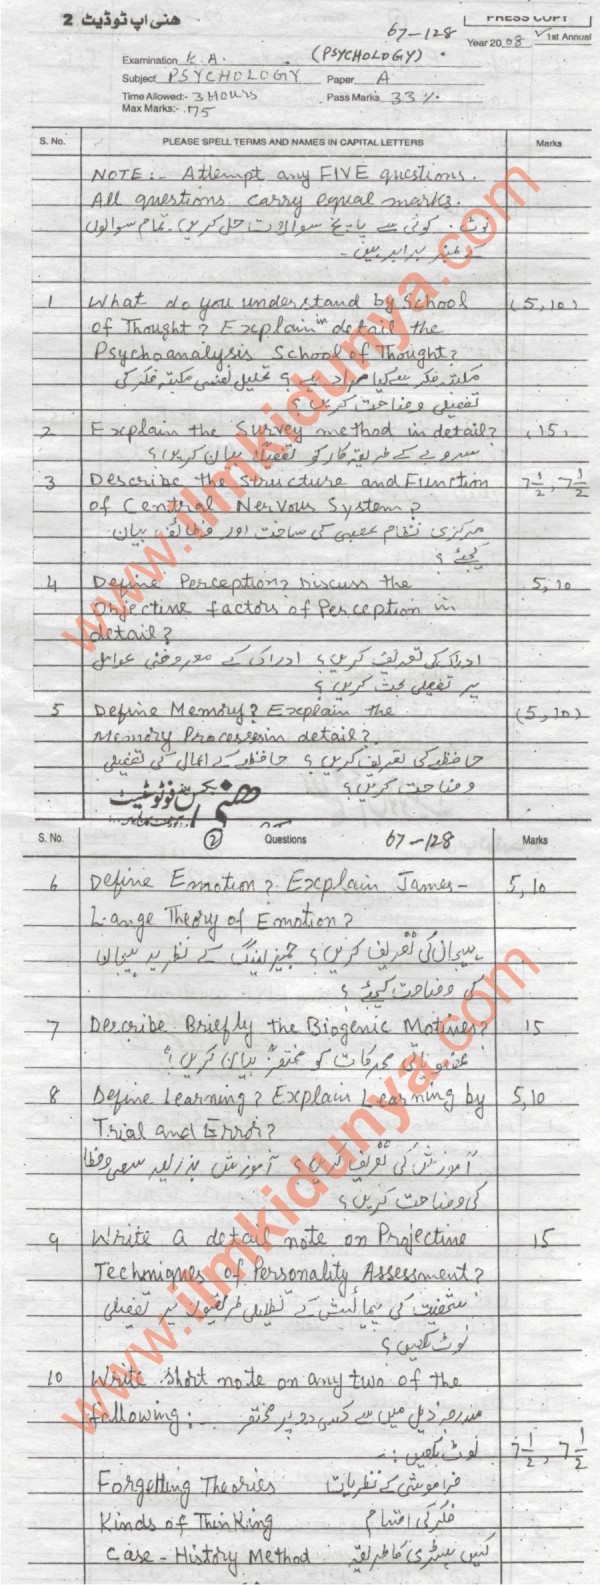 ھنی اپ ٹوڈیٹ 2
67-128
PRESS COPY
Year 2008 1st Annual
(PSYCHOLOGY)
Examination
Subject PSYCHOLOGY Paper A
Time Allowed:- 3 Hours Pass Marks 33%
Max Marks:- 75
S. No. PLEASE SPELL TERMS AND NAMES IN CAPITAL LETTERS Marks
NOTE:- Attempt any FIVE questions.
All questions carry equal marks.
نوٹ: کوئی سے پانچ سوالات حل کریں۔ تمام سوالوں
کے نمبر برابر ہیں۔
1 What do you understand by School (5,10)
of Thought? Explain in detail the
Psychoanalysis School of Thought?
مکتبہ فکر سے کیا مراد ہے؟ تحلیل نفسی مکتبہ فکر کی
تفصیلی وضاحت کریں؟
2 Explain the Survey method in detail? (15)
سروے کے طریقہ کار کو تفصیلاً بیان کریں؟
3 Describe the Structure and Function 7 1/2, 7 1/2
of Central Nervous System?
مرکزی نظام عصبی کی ساخت اور وظائف بیان
کیجئے؟
4 Define Perception? Discuss the 5,10
Objective factors of Perception in
detail?
ادراک کی تعریف کریں؟ ادراک کے معروضی عوامل
پر تفصیلی بحث کریں؟
5 Define Memory? Explain the (5,10)
Memory Processes in detail?
حافظہ کی تعریف کریں؟ حافظہ کے اعمال کی تفصیلی
وضاحت کریں؟
ھنی
فوٹوسٹیٹ
S. No. (2) Questions 67-128 Marks
6 Define Emotion? Explain James- 5,10
Lange Theory of Emotion?
ہیجان کی تعریف کریں؟ جیمز لینگ کے نظریہ ہیجان
کی وضاحت کیجئے؟
7 Describe Briefly the Biogenic Motives? 15
عضویاتی محرکات کو مختصراً بیان کریں؟
8 Define Learning? Explain Learning by 5,10
Trial and Error?
آموزش کی تعریف کریں؟ آموزش بذریعہ سعی و خطا
کی وضاحت کریں؟
9 Write a detail note on Projective 15
Techniques of Personality Assessment?
شخصیت کی پیمائش کے تظلیلی طریقوں پر تفصیلی
نوٹ لکھیں؟
10 Write short note on any two of the
following:- مندرجہ ذیل میں سے کسی دو پر مختصر
نوٹ لکھیں:- 7 1/2, 7 1/2
Forgetting Theories فراموشی کے نظریات
Kinds of Thinking فکر کی اقسام
Case-History Method کیس ہسٹری کا طریقہ
www.ilmkidunya.com
www.ilmkidunya.com